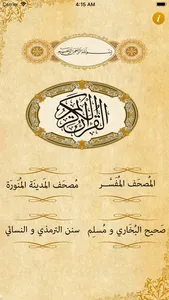 Carrier
4:15 AM
بسم الله الرحمن الرحيم
القرآن الكريم
المُصحَف المُفَسْر
مُصحَف المَدينَة المُنَورَة
صَحيح البُخَاري و مُسلِم
سنن الترمذي و النسائي